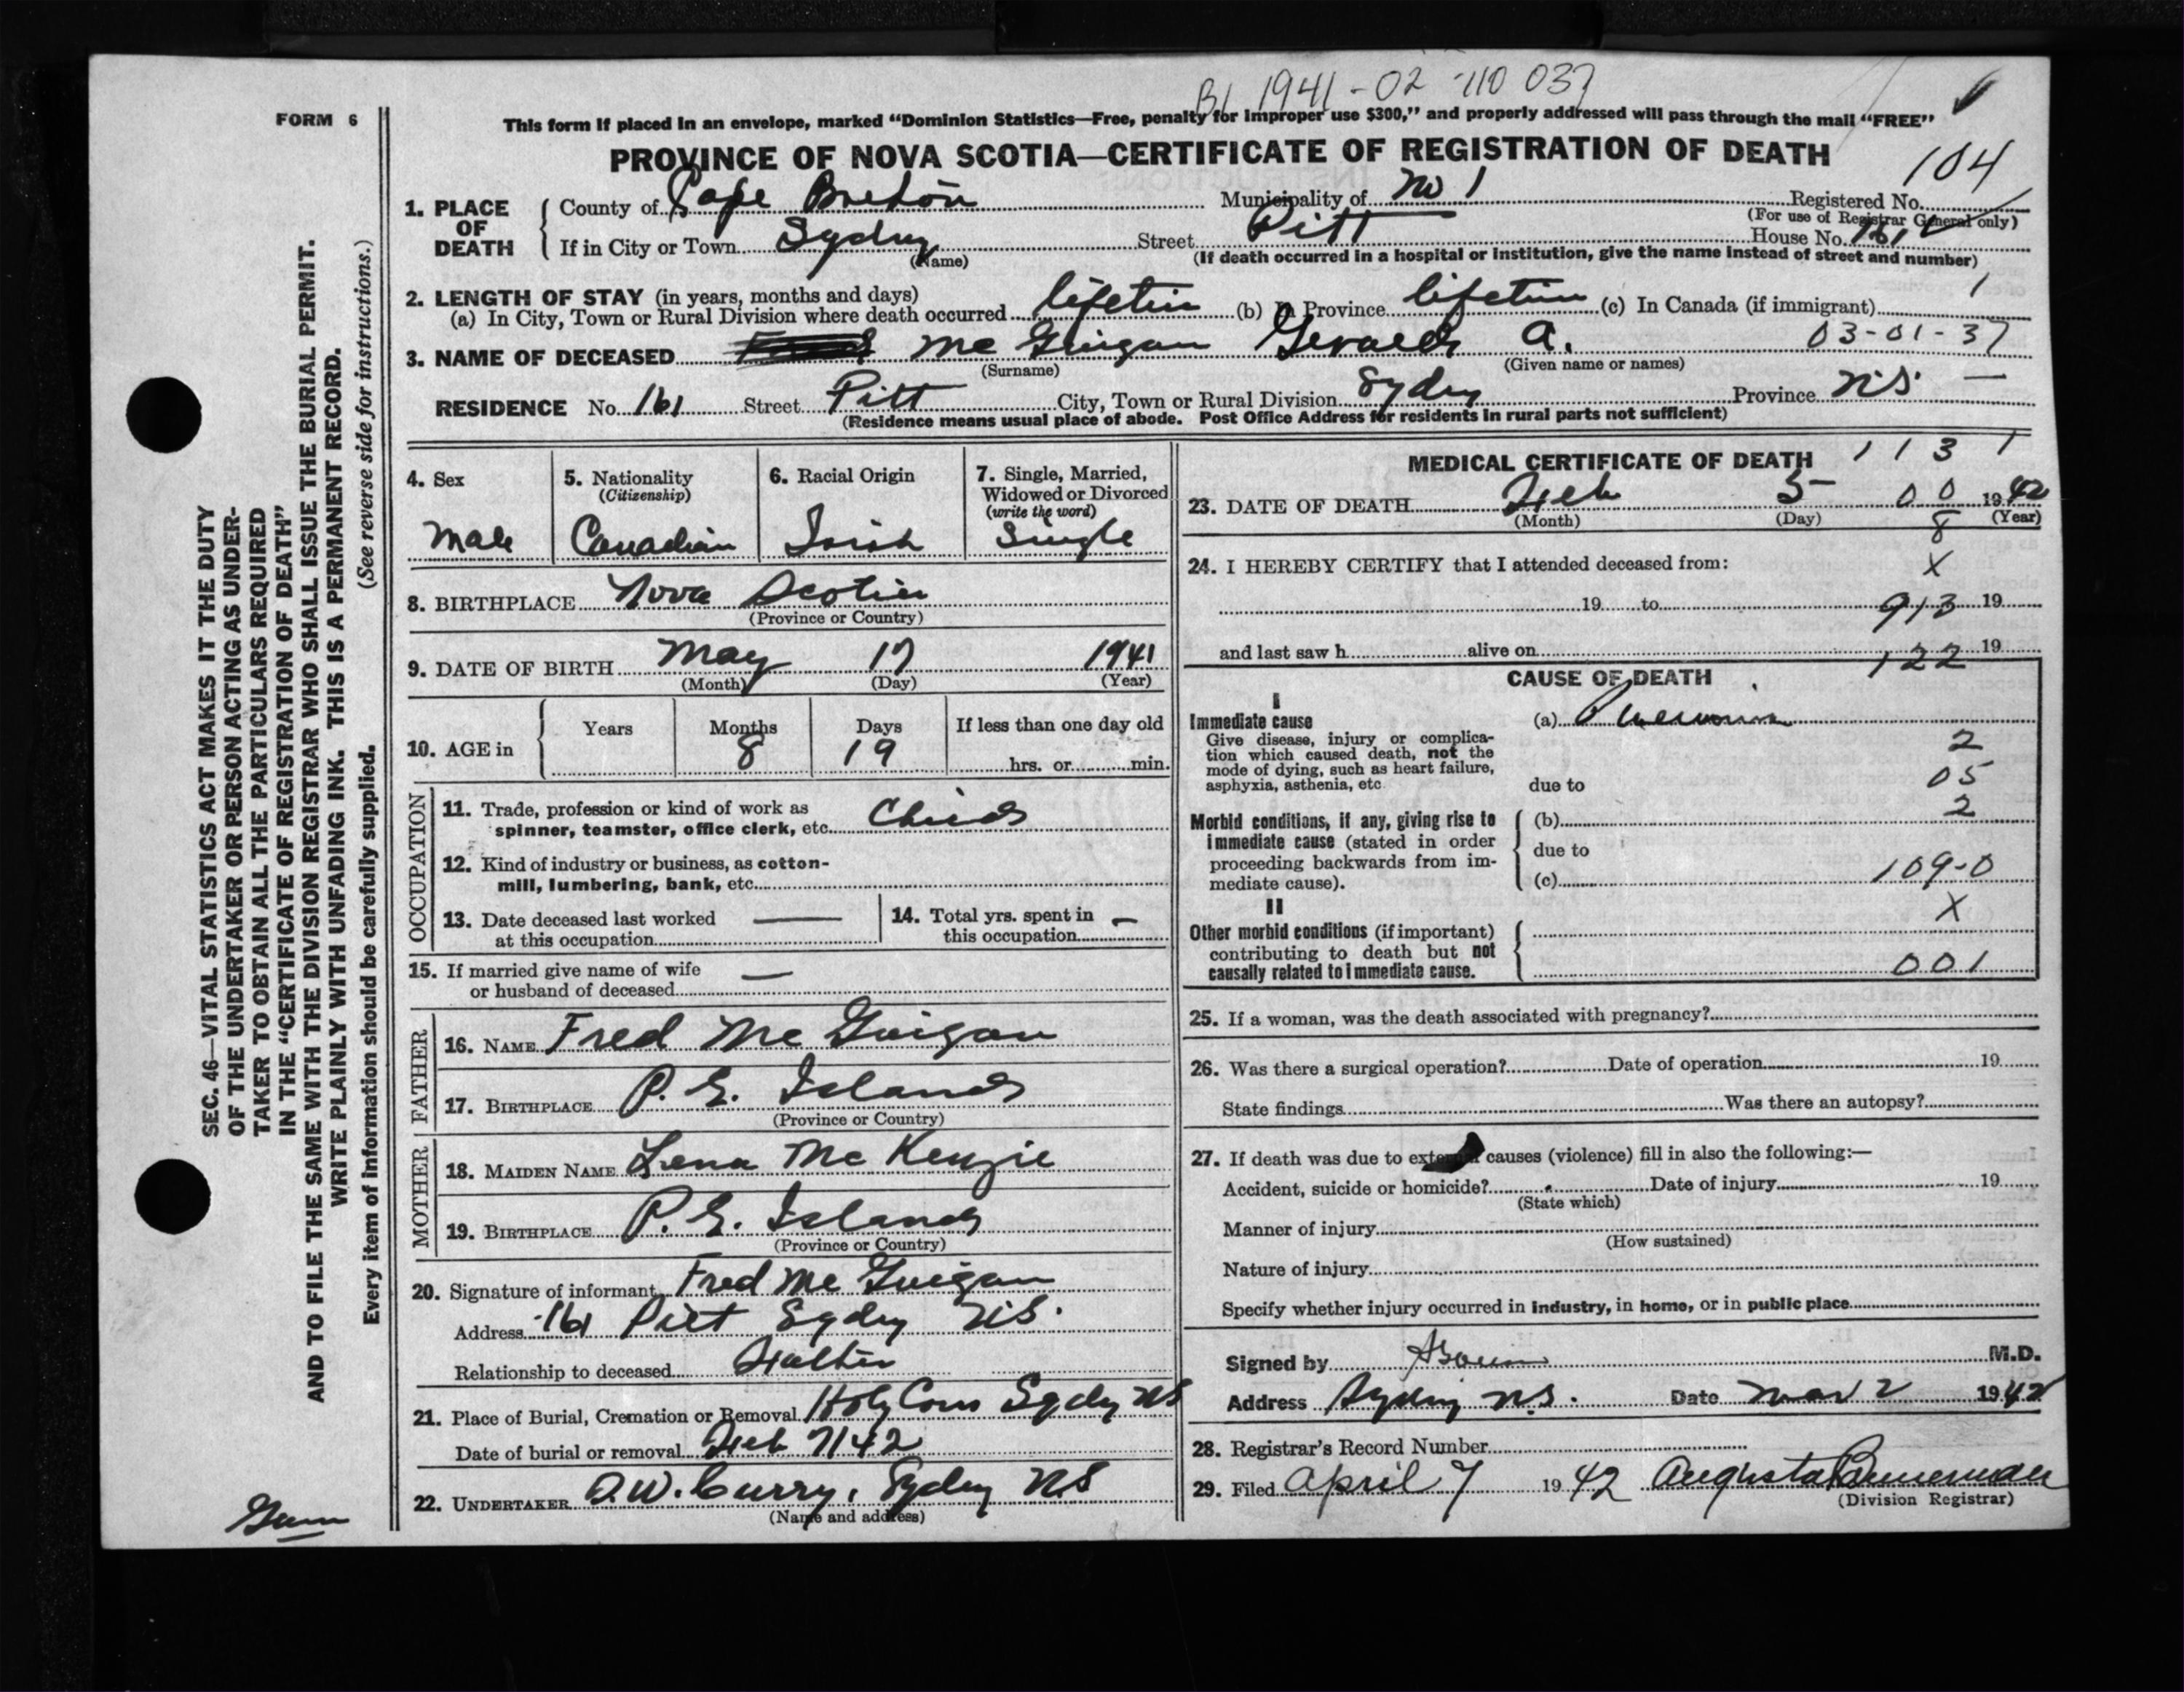 B1 1941-02-110 037
FORM 6
This form if placed in an envelope, marked "Dominion Statistics—Free, penalty for improper use $300," and properly addressed will pass through the mail "FREE"
PROVINCE OF NOVA SCOTIA—CERTIFICATE OF REGISTRATION OF DEATH
104
1. PLACE OF DEATH
County of Cape Breton Municipality of No 1 Registered No.
(For use of Registrar General only)
If in City or Town Sydney Street Pitt House No. 161
(Name) (If death occurred in a hospital or institution, give the name instead of street and number)
2. LENGTH OF STAY (in years, months and days)
(a) In City, Town or Rural Division where death occurred lifetime (b) In Province lifetime (c) In Canada (if immigrant) 1
3. NAME OF DECEASED Mc Guigan Gerald A. 03-01-37
(Surname) (Given name or names)
RESIDENCE No. 161 Street Pitt City, Town or Rural Division Sydney Province N.S. —
(Residence means usual place of abode. Post Office Address for residents in rural parts not sufficient)
4. Sex
Male
5. Nationality
(Citizenship)
Canadian
6. Racial Origin
Irish
7. Single, Married,
Widowed or Divorced
(write the word)
Single
8. BIRTHPLACE Nova Scotia
(Province or Country)
9. DATE OF BIRTH May 17 1941
(Month) (Day) (Year)
10. AGE in
Years Months Days If less than one day old
8 19 hrs. or min.
OCCUPATION
11. Trade, profession or kind of work as
spinner, teamster, office clerk, etc. Child
12. Kind of industry or business, as cotton-
mill, lumbering, bank, etc.
13. Date deceased last worked —
at this occupation
14. Total yrs. spent in —
this occupation
15. If married give name of wife —
or husband of deceased
FATHER
16. NAME Fred Mc Guigan
17. BIRTHPLACE P. E. Island
(Province or Country)
MOTHER
18. MAIDEN NAME Lena Mc Kenzie
19. BIRTHPLACE P. E. Island
(Province or Country)
20. Signature of informant Fred Mc Guigan
Address 161 Pitt Sydney N.S.
Relationship to deceased Father
21. Place of Burial, Cremation or Removal Holy Cross Sydney NS
Date of burial or removal Feb 7/42
22. UNDERTAKER D.W. Curry, Sydney NS
(Name and address)
MEDICAL CERTIFICATE OF DEATH 1 1 3 1
23. DATE OF DEATH Feb 5 00 1942
(Month) (Day) (Year)
8
24. I HEREBY CERTIFY that I attended deceased from: X
19 to 913 19
and last saw h alive on 122 19
CAUSE OF DEATH
I
Immediate cause (a) Pneumonia
Give disease, injury or complica-
tion which caused death, not the
mode of dying, such as heart failure,
asphyxia, asthenia, etc.
2
due to 05
2
Morbid conditions, if any, giving rise to (b)
immediate cause (stated in order
proceeding backwards from im- due to
mediate cause). (c) 109-0
II
X
Other morbid conditions (if important)
contributing to death but not
causally related to immediate cause. 001
25. If a woman, was the death associated with pregnancy?
26. Was there a surgical operation? Date of operation 19
State findings Was there an autopsy?
27. If death was due to external causes (violence) fill in also the following:—
Accident, suicide or homicide? Date of injury 19
(State which)
Manner of injury
(How sustained)
Nature of injury
Specify whether injury occurred in industry, in home, or in public place
Signed by M.D.
Address Sydney N.S. Date Mar 2 1942
28. Registrar's Record Number
29. Filed April 7 1942 Augusta
(Division Registrar)
SEC. 46—VITAL STATISTICS ACT MAKES IT THE DUTY
OF THE UNDERTAKER OR PERSON ACTING AS UNDER-
TAKER TO OBTAIN ALL THE PARTICULARS REQUIRED
IN THE "CERTIFICATE OF REGISTRATION OF DEATH"
AND TO FILE THE SAME WITH THE DIVISION REGISTRAR WHO SHALL ISSUE THE BURIAL PERMIT.
WRITE PLAINLY WITH UNFADING INK. THIS IS A PERMANENT RECORD.
Every item of information should be carefully supplied. (See reverse side for instructions.)